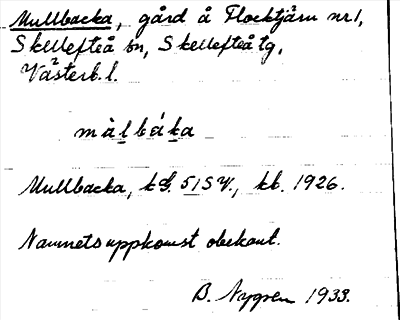 Mullbacka, gård å Flocktjärn nr 1,
Skellefteå sn, Skellefteå tg,
Västerb. l.
màlbáka
Mullbacka, kbl. 51 S V., kb. 1926.
Namnets uppkomst obekant.
B. Nygren 1933.